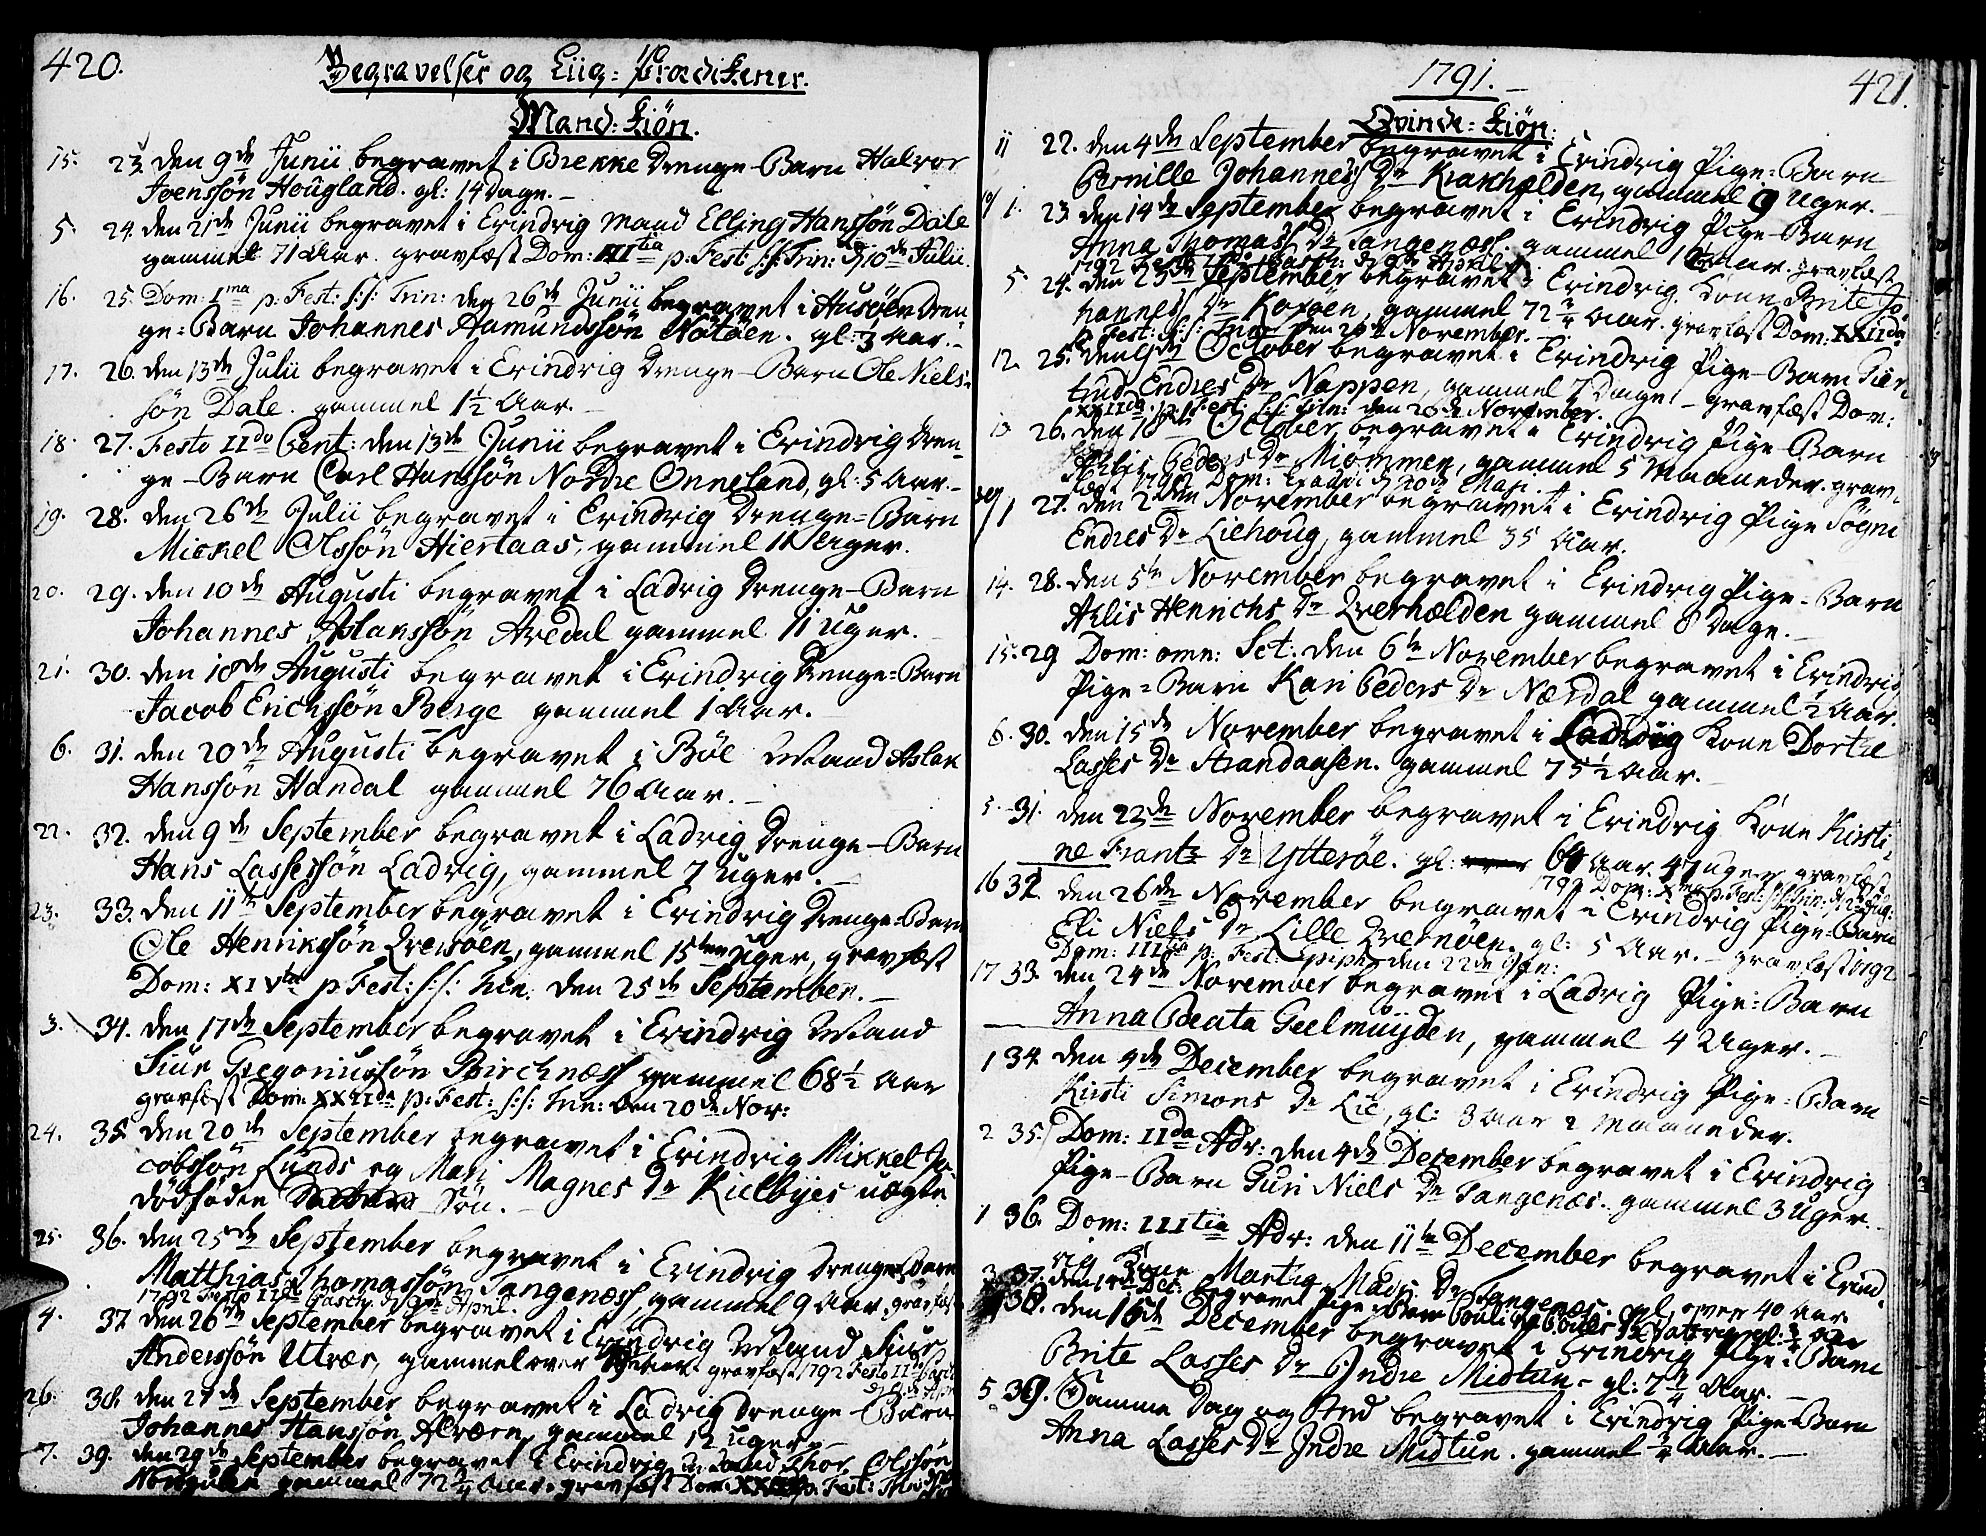 420.
Begravelser og Liig=Prædikener.
Mand=Kiøn.
15. 23. den 9de Junii begravet i Brekke Drenge-Barn Halvor
Joenssøn Hougland. gl: 14 Dage.
5. 24. den 21de Junii begravet i Evindvig Mand Elling Hanssøn Dale
gammel 71 Aar. gravfæst Dom: IIItia p: Fest: s:s: Trin: d 10de Julii.
16. 25. Dom: Ima p: Fest: s:s: Trin: den 26de Junii begravet i Husøen Dren-
ge=Barn Johannes Aamundssøn Nätöen. gl: 3 Aar.
17. 26. den 13de Julii begravet i Evindvig Drenge-Barn Ole Niels-
søn Dale. gammel 1½ Aar.
18. 27. Festo IIdo Pent: den 13de Junii begravet i Evindvig Dren-
ge-Barn Carl Hanssøn Nordre Onneland, gl: 5 Aar.
19. 28. den 26de Julii begravet i Evindvig Drenge-Barn
Mickel Olssøn Hiertaas, gammel 11 Uger.
20. 29. den 10de Augusti begravet i Ladvig Drenge-Barn
Johannes Aslanssøn Avedal gammel 11 Uger.
21. 30. den 18de Augusti begravet i Evindvig Drenge=Barn
Jacob Erichssøn Berge gammel 1 Aar.
6. 31. den 20de Augusti begravet i Bøe Mand Aslak
Hanssøn Handal gammel 76 Aar.
22. 32. den 9de September begravet i Ladvig Drenge-Barn
Hans Lassessøn Ladvig, gammel 7 Uger.
23. 33. den 11te September begravet i Evindvig Drenge=Barn
Ole Henrikssøn Qversøen, gammel 15ten Uger, gravfæst
Dom: XIVta p Fest: s:s: Trin: den 25de September.
3. 34. den 17de September begravet i Evindvig Mand
Siur Gregoriussøn Birchnæss gammel 68½ Aar
gravfæst Dom: XXIIda p: Fest: s:s: Trin: den 20de Nov:
24. 35. den 20de September begravet i Evindvig Mikkel Ja-
cobssøn Lunds og Mari Magnes Dr Kielbyes uægte
dödföden Søn.
25. 36. den 25de September begravet i Evindvig Drenge-Barn
Matthias Thomassøn Tangenæss, gammel 9 Aar, gravfæst
1792 Festo IIdo Pasch: d 9de April.
4. 37. den 26de September begravet i Evindvig Mand Siur
Anderssøn Utvær, gammel over gravfæst 1792 Festo IIdo Pasch:
26. 38. den 27de September begravet i Ladvig Drenge-Barn
Johannes Hanssøn Alværn, gammel 12 Uger.
7. 39. den 29de September begravet i Evindvig Mand Thor Olssøn
gammel 72 3/4 Aar. gravfæst Dom: p: Fest: Trin:
1791.
421.
Qvinde=Kiøn.
11 22. den 4de September begravet i Evindvig Pige=Barn
Pernille Johannes Dr Krakhælden, gammel 9 Uger.
1. 23. den 14de September begravet i Evindvig Pige-Barn
Anna Thomass Dr Tangenæss. gammel Aar. gravfæst
1792 Festo IIdo Pasch: d 9de April.
5. 24. den 23de September begravet i Evindvig Kone Brite Jo-
hannes Dr Kovøen, gammel 72 3/4 Aar. gravfæst Dom: XXIIda
p. Fest: s:s: Trin: den 20de November.
12. 25. den October begravet i Evindvig Pige-Barn Gier-
trud Endres Dr Nappen, gammel 7 Dage. gravfæst Dom:
XXIIda p: Fest: s:s: Trin: den 20de November.
13 26. den 18de October begravet i Evindvig Pige-Barn
Ahlis Peders Dr Miömmen, gammel 5 Maaneder. grav-
fæst 1792 Dom: Exaudi d 20de Maji
1 27. den 2den November begravet i Evindvig Pige Sögni
Endres Dr Liehoug, gammel 35 Aar.
14. 28. den 5te November begravet i Evindvig Pige=Barn
Ahlis Henrichs Dr Qverhælden gammel 8 Dage.
15. 29 Dom: omn: Sct: den 6te November begravet i Evindvig
Pige=Barn Kari Peders Dr Nærdal gammel ½ Aar.
6. 30. den 15de November begravet i Ladvig Kone Dorthe
Lasses Dr Strandaasen. gammel 75½ Aar.
5. 31. den 22de November begravet i Evindvig Kone Kirsti-
ne Frantz Dr Ytterøe. gl: Aar 47 uger gravfæst
1792 Dom: Xma p: Fest: s:s: Trin: d 12 Aug:
16 32. den 26de November begravet i Evindvig Pige=Barn
Eli Niels Dr Lille Qvernöen. gl: 5 Aar. gravfæst 1792
Dom: IIItia p: Fest: Epiph: den 22de Jan:
17 33. den 24de November begravet i Ladvig Pige=Barn
Anna Beata Geelmuyden, gammel 4 Uger.
1 34. den 4de December begravet i Evindvig Pige=Barn
Kirsti Simons Dr Lie, gl: 3 Aar 2 Maaneder.
2 35. Dom: IIda Adv: den 4de December begravet i Evindvig
Pige-Barn Guri Niels Dr Tangenæs. gammel 3 Uger.
1 36. Dom: IIItia Adv: den 11te December begravet i Evind-
vig Kone Martha Mads Dr Tangenæs. gl. over 40 Aar
3 37. den 14de Dec: begravet Pige-Barn
4 38. den 16de December begravet i Evindvig Pige=Barn
Brite Lasses Dr Indre Midtun. gl: 7 3/4 Aar.
5 39. Samme Dag og Sted begravet i Evindvig Pige-Barn
Anna Lasses Dr Indre Midtun. gammel 3/4 Aar.